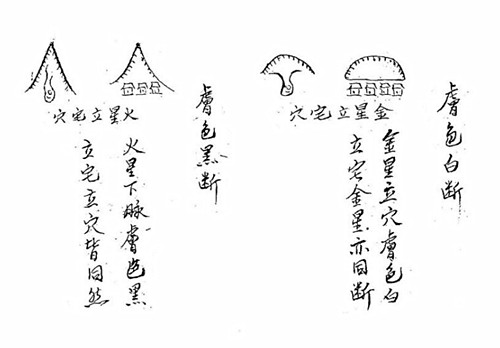 膚色白断
金星立宅穴
金星立穴膚色白
立宅金星亦同断
膚色黑断
火星立宅穴
火星下脉膚色黑
立宅立穴皆同然